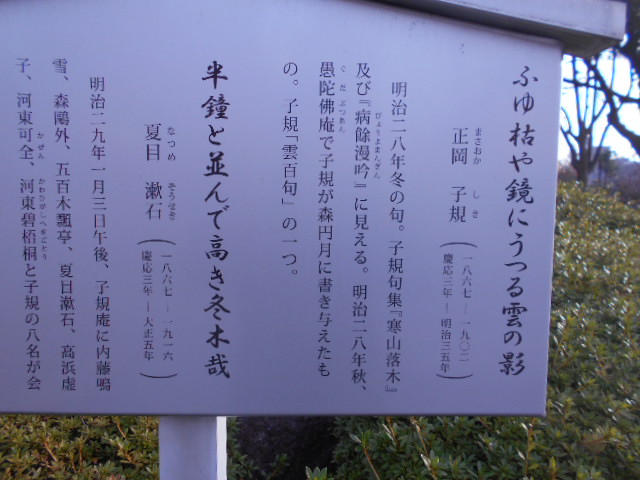 ふゆ枯や鏡にうつる雲の影
正岡 子規
まさおか しき
(一八六七―一九〇二
慶応三年―明治三五年)
明治二八年冬の句。子規句集『寒山落木』
及び『病餘漫吟』に見える。明治二八年秋、
びょうよまんぎん
愚陀佛庵で子規が森円月に書き与えたも
ぐだぶつあん
の。子規「雲百句」の一つ。
半鐘と並んで高き冬木哉
夏目 漱石
なつめ そうせき
(一八六七―一九一六
慶応三年―大正五年)
明治二九年一月三日午後、子規庵に内藤鳴
雪、森鷗外、五百木飄亭、夏目漱石、高浜虚
子、河東可全、河東碧梧桐と子規の八名が会
かぜん かわひがしへきごとう